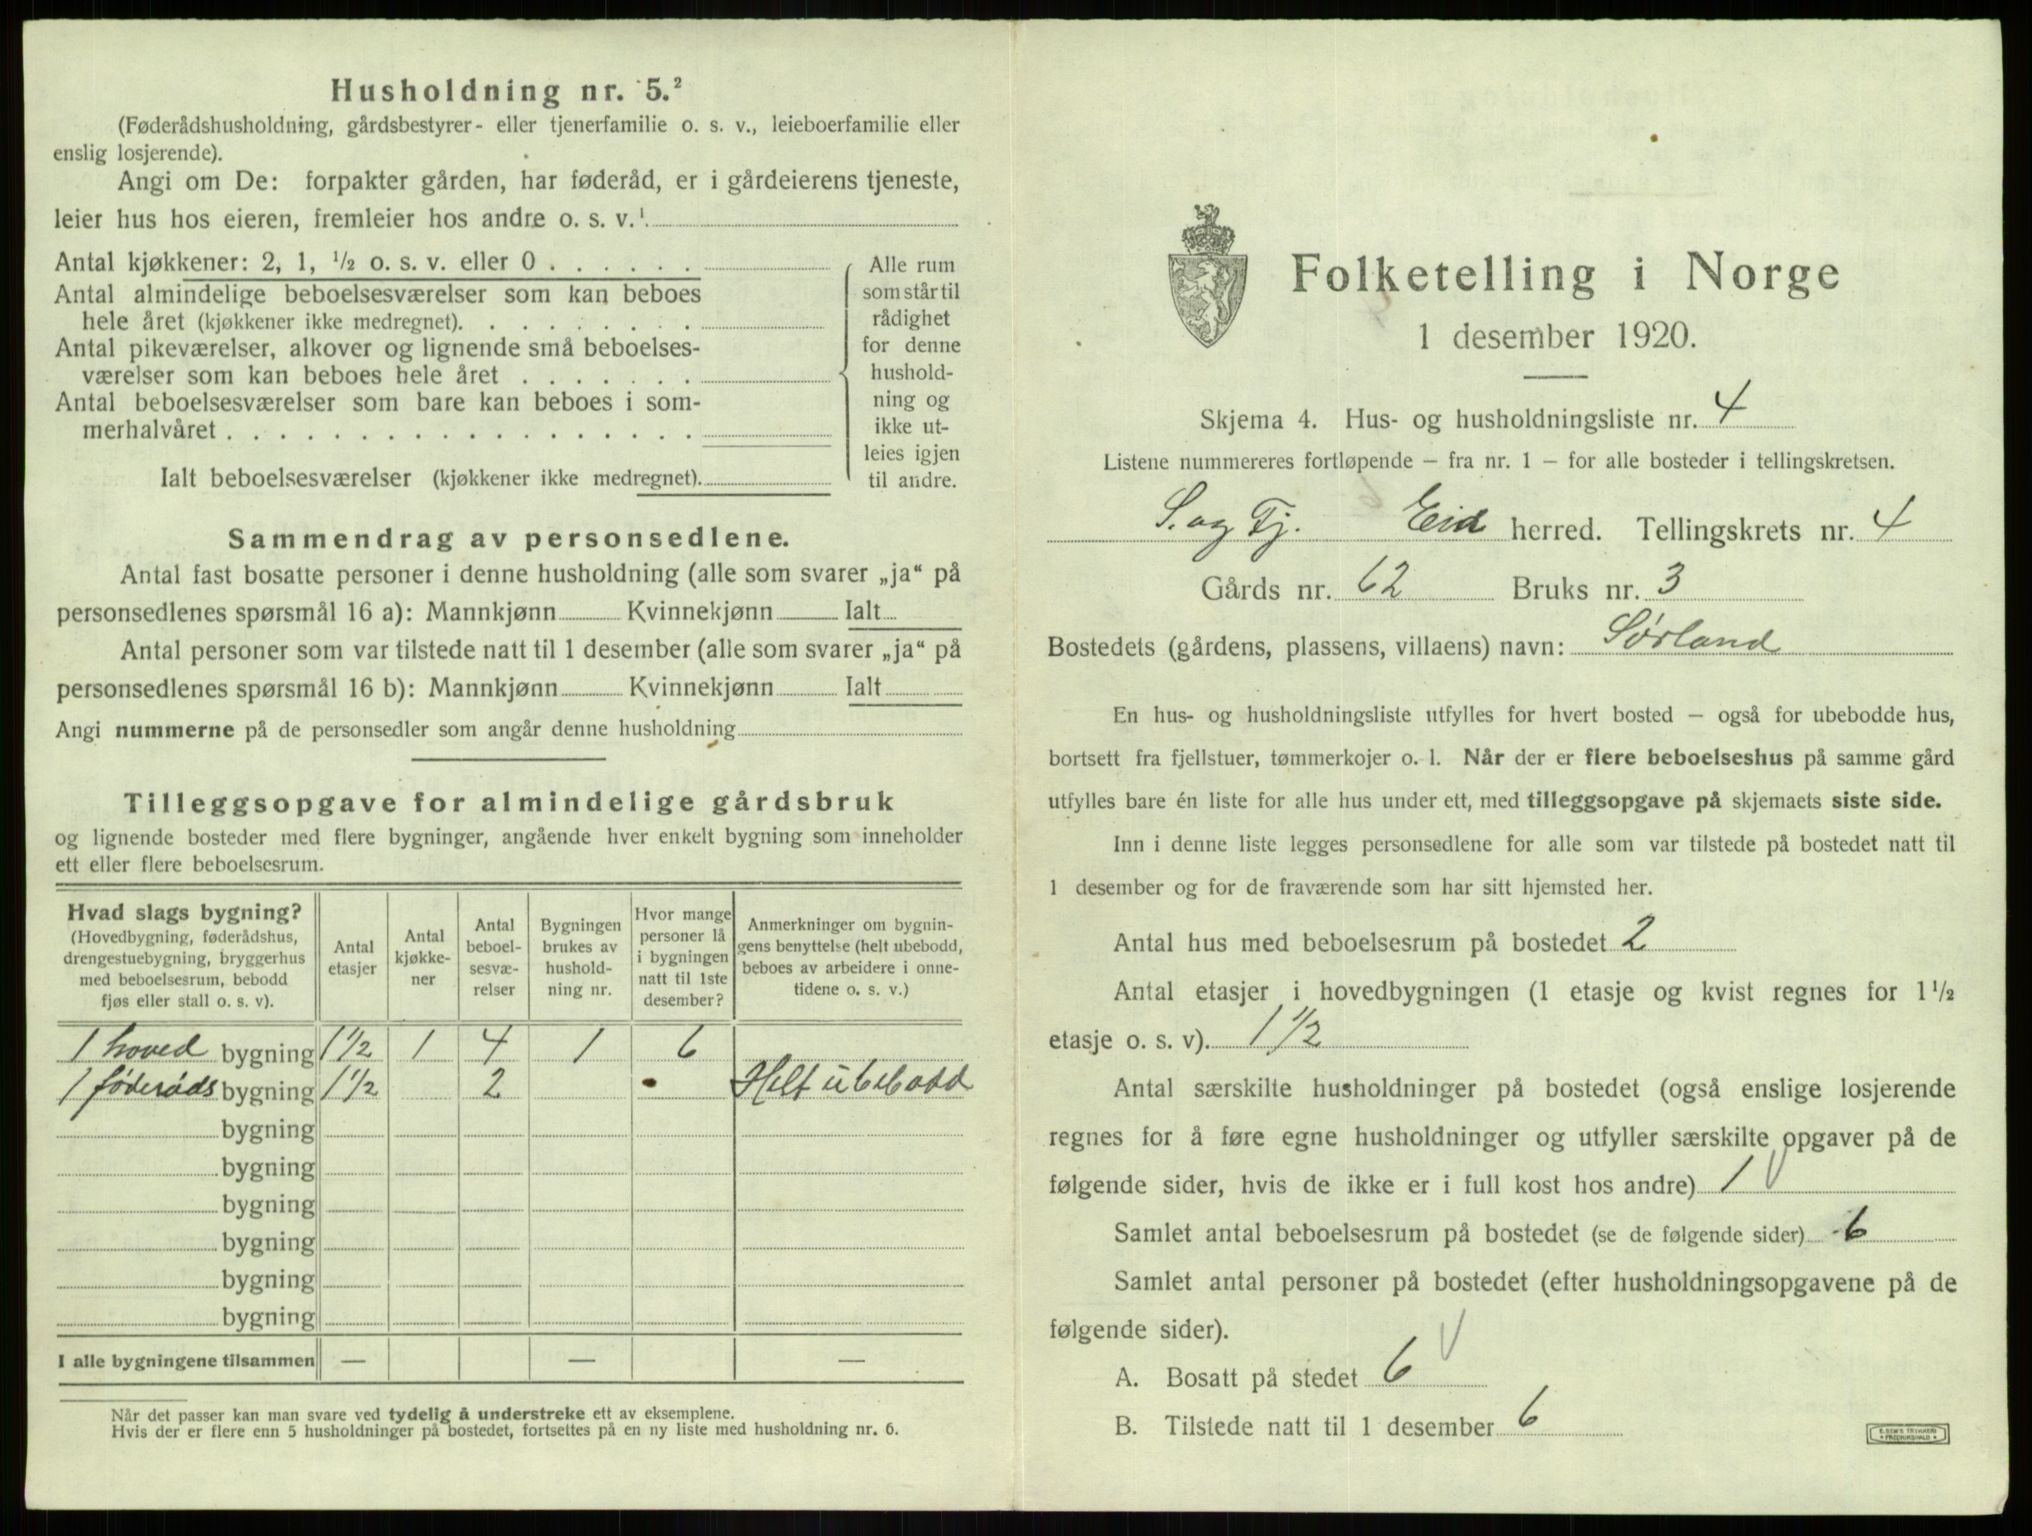 Husholdning nr. 5.²
(Føderådshusholdning, gårdsbestyrer- eller tjenerfamilie o. s. v., leieboerfamilie eller
enslig losjerende).
Angi om De: forpakter gården, har føderåd, er i gårdeierens tjeneste,
leier hus hos eieren, fremleier hos andre o. s. v.¹
Antal kjøkkener: 2, 1, ½ o. s. v. eller 0 . . . . . .
Antal almindelige beboelsesværelser som kan beboes
hele året (kjøkkener ikke medregnet). . . . . . . . .
Antal pikeværelser, alkover og lignende små beboelses-
værelser som kan beboes hele året . . . . . . .
Antal beboelsesværelser som bare kan beboes i som-
merhalvåret . . . . . . . . . . . . . . . . . .
Ialt beboelsesværelser (kjøkkener ikke medregnet).
Alle rum
som står til
rådighet
for denne
hushold-
ning og
ikke ut-
leies igjen
til andre.
Sammendrag av personsedlene.
Antal fast bosatte personer i denne husholdning (alle som svarer „ja“ på
personsedlenes spørsmål 16 a): Mannkjønn Kvinnekjønn Ialt
Antal personer som var tilstede natt til 1 desember (alle som svarer „ja“ på
personsedlenes spørsmål 16 b): Mannkjønn Kvinnekjønn Ialt
Angi nummerne på de personsedler som angår denne husholdning
Tilleggsopgave for almindelige gårdsbruk
og lignende bosteder med flere bygninger, angående hver enkelt bygning som inneholder
ett eller flere beboelsesrum.
Hvad slags bygning?
(Hovedbygning, føderådshus,
drengestuebygning, bryggerhus
med beboelsesrum, bebodd
fjøs eller stall o. s. v).
Antal
etasjer
Antal
kjøkke-
ner
Antal
beboel-
sesvæ-
relser
Bygningen
brukes av
hushold-
ning nr.
Hvor mange
personer lå
i bygningen
natt til 1ste
desember?
Anmerkninger om bygnin-
gens benyttelse (helt ubebodd,
beboes av arbeidere i onne-
tidene o. s. v.)
1 hoved bygning 1½ 1 4 1 6
1 føderåds bygning 1½ 2 Helt ubebodd
bygning
bygning
bygning
bygning
bygning
bygning
I alle bygningene tilsammen — — —
Når det passer kan man svare ved tydelig å understreke ett av eksemplene.
Hvis der er flere enn 5 husholdninger på bostedet, fortsettes på en ny liste med husholdning nr. 6.
Folketelling i Norge
1 desember 1920.
Skjema 4. Hus- og husholdningsliste nr. 4
Listene nummereres fortløpende – fra nr. 1 – for alle bosteder i tellingskretsen.
S. og Fj. Eid herred. Tellingskrets nr. 4
Gårds nr. 62 Bruks nr. 3
Bostedets (gårdens, plassens, villaens) navn: Sørland
En hus- og husholdningsliste utfylles for hvert bosted – også for ubebodde hus,
bortsett fra fjellstuer, tømmerkojer o. l. Når der er flere beboelseshus på samme gård
utfylles bare én liste for alle hus under ett, med tilleggsopgave på skjemaets siste side.
Inn i denne liste legges personsedlene for alle som var tilstede på bostedet natt til
1 desember og for de fraværende som har sitt hjemsted her.
Antal hus med beboelsesrum på bostedet 2
Antal etasjer i hovedbygningen (1 etasje og kvist regnes for 1½
etasje o. s. v). 1½
Antal særskilte husholdninger på bostedet (også enslige losjerende
regnes for å føre egne husholdninger og utfyller særskilte opgaver på de
følgende sider, hvis de ikke er i full kost hos andre) 1
Samlet antal beboelsesrum på bostedet (se de følgende sider) 6
Samlet antal personer på bostedet (efter husholdningsopgavene på de
følgende sider).
A. Bosatt på stedet 6
B. Tilstede natt til 1 desember 6